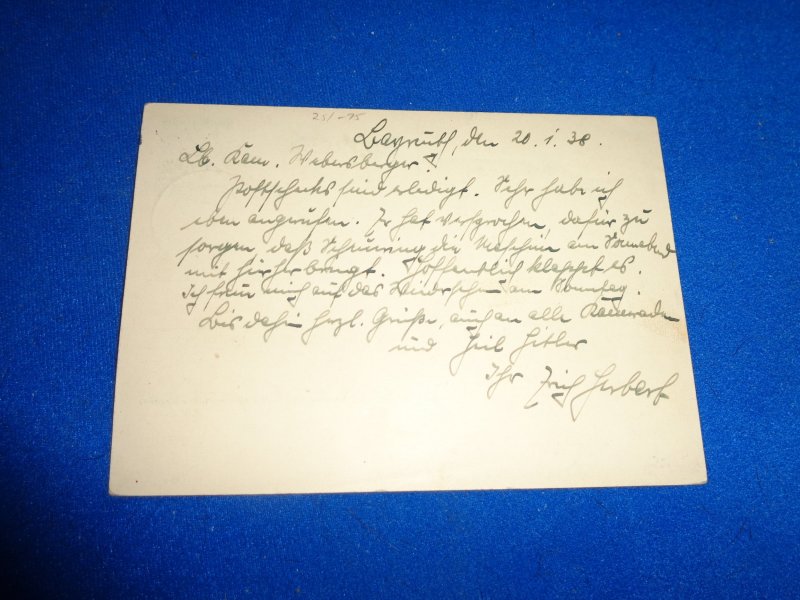 25/-75
Bayreuth, den 20. 1. 38.
Lb. Kam. Webersberger!
Postschecks sind erledigt. Sehr habe ich
eben angerufen. Er hat versprochen, dafür zu
sorgen, daß die Maschin am Sonnabend
mit hierherbringt. Hoffentlich klappt es.
Ich freue mich auf das Wiedersehen am Sonntag.
Bis dahin herzl. Grüße, auch an alle Kameraden
und Heil Hitler
Ihr Erich Herbert